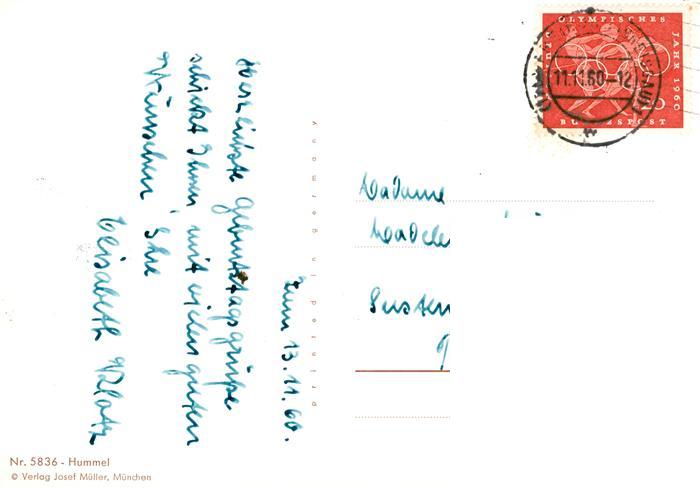 Zum 13.11.60.
Herzlichste Geburtstagsgrüße
schickt Ihnen mit vielen guten
Wünschen Ihre
Elisabeth
OLYMPISCHES
JAHR 1960
BUNDESPOST
11.11.60-12
Madame
printed in germany
Nr. 5836 - Hummel
© Verlag Josef Müller, München